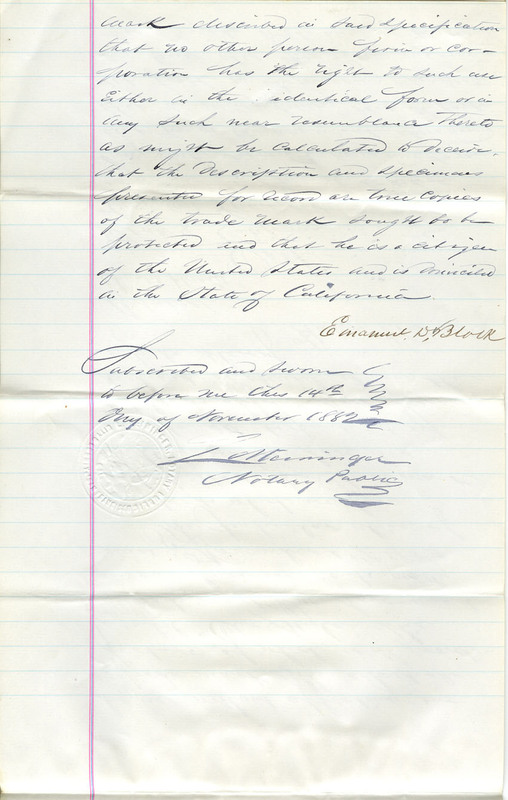 mark described in said specification
that no other person firm or cor-
poration has the right to such use
Either in the identical form or in
any such near resemblance thereto
as might be calculated to deceive,
that the description and specimens
presented for record are true copies
of the trade mark sought to be
protected and that he is a citizen
of the United States and is domiciled
in the State of California.
Emanuel D. Block
Subscribed and sworn
to before me this 14th
Day of November 1882
Notary Public